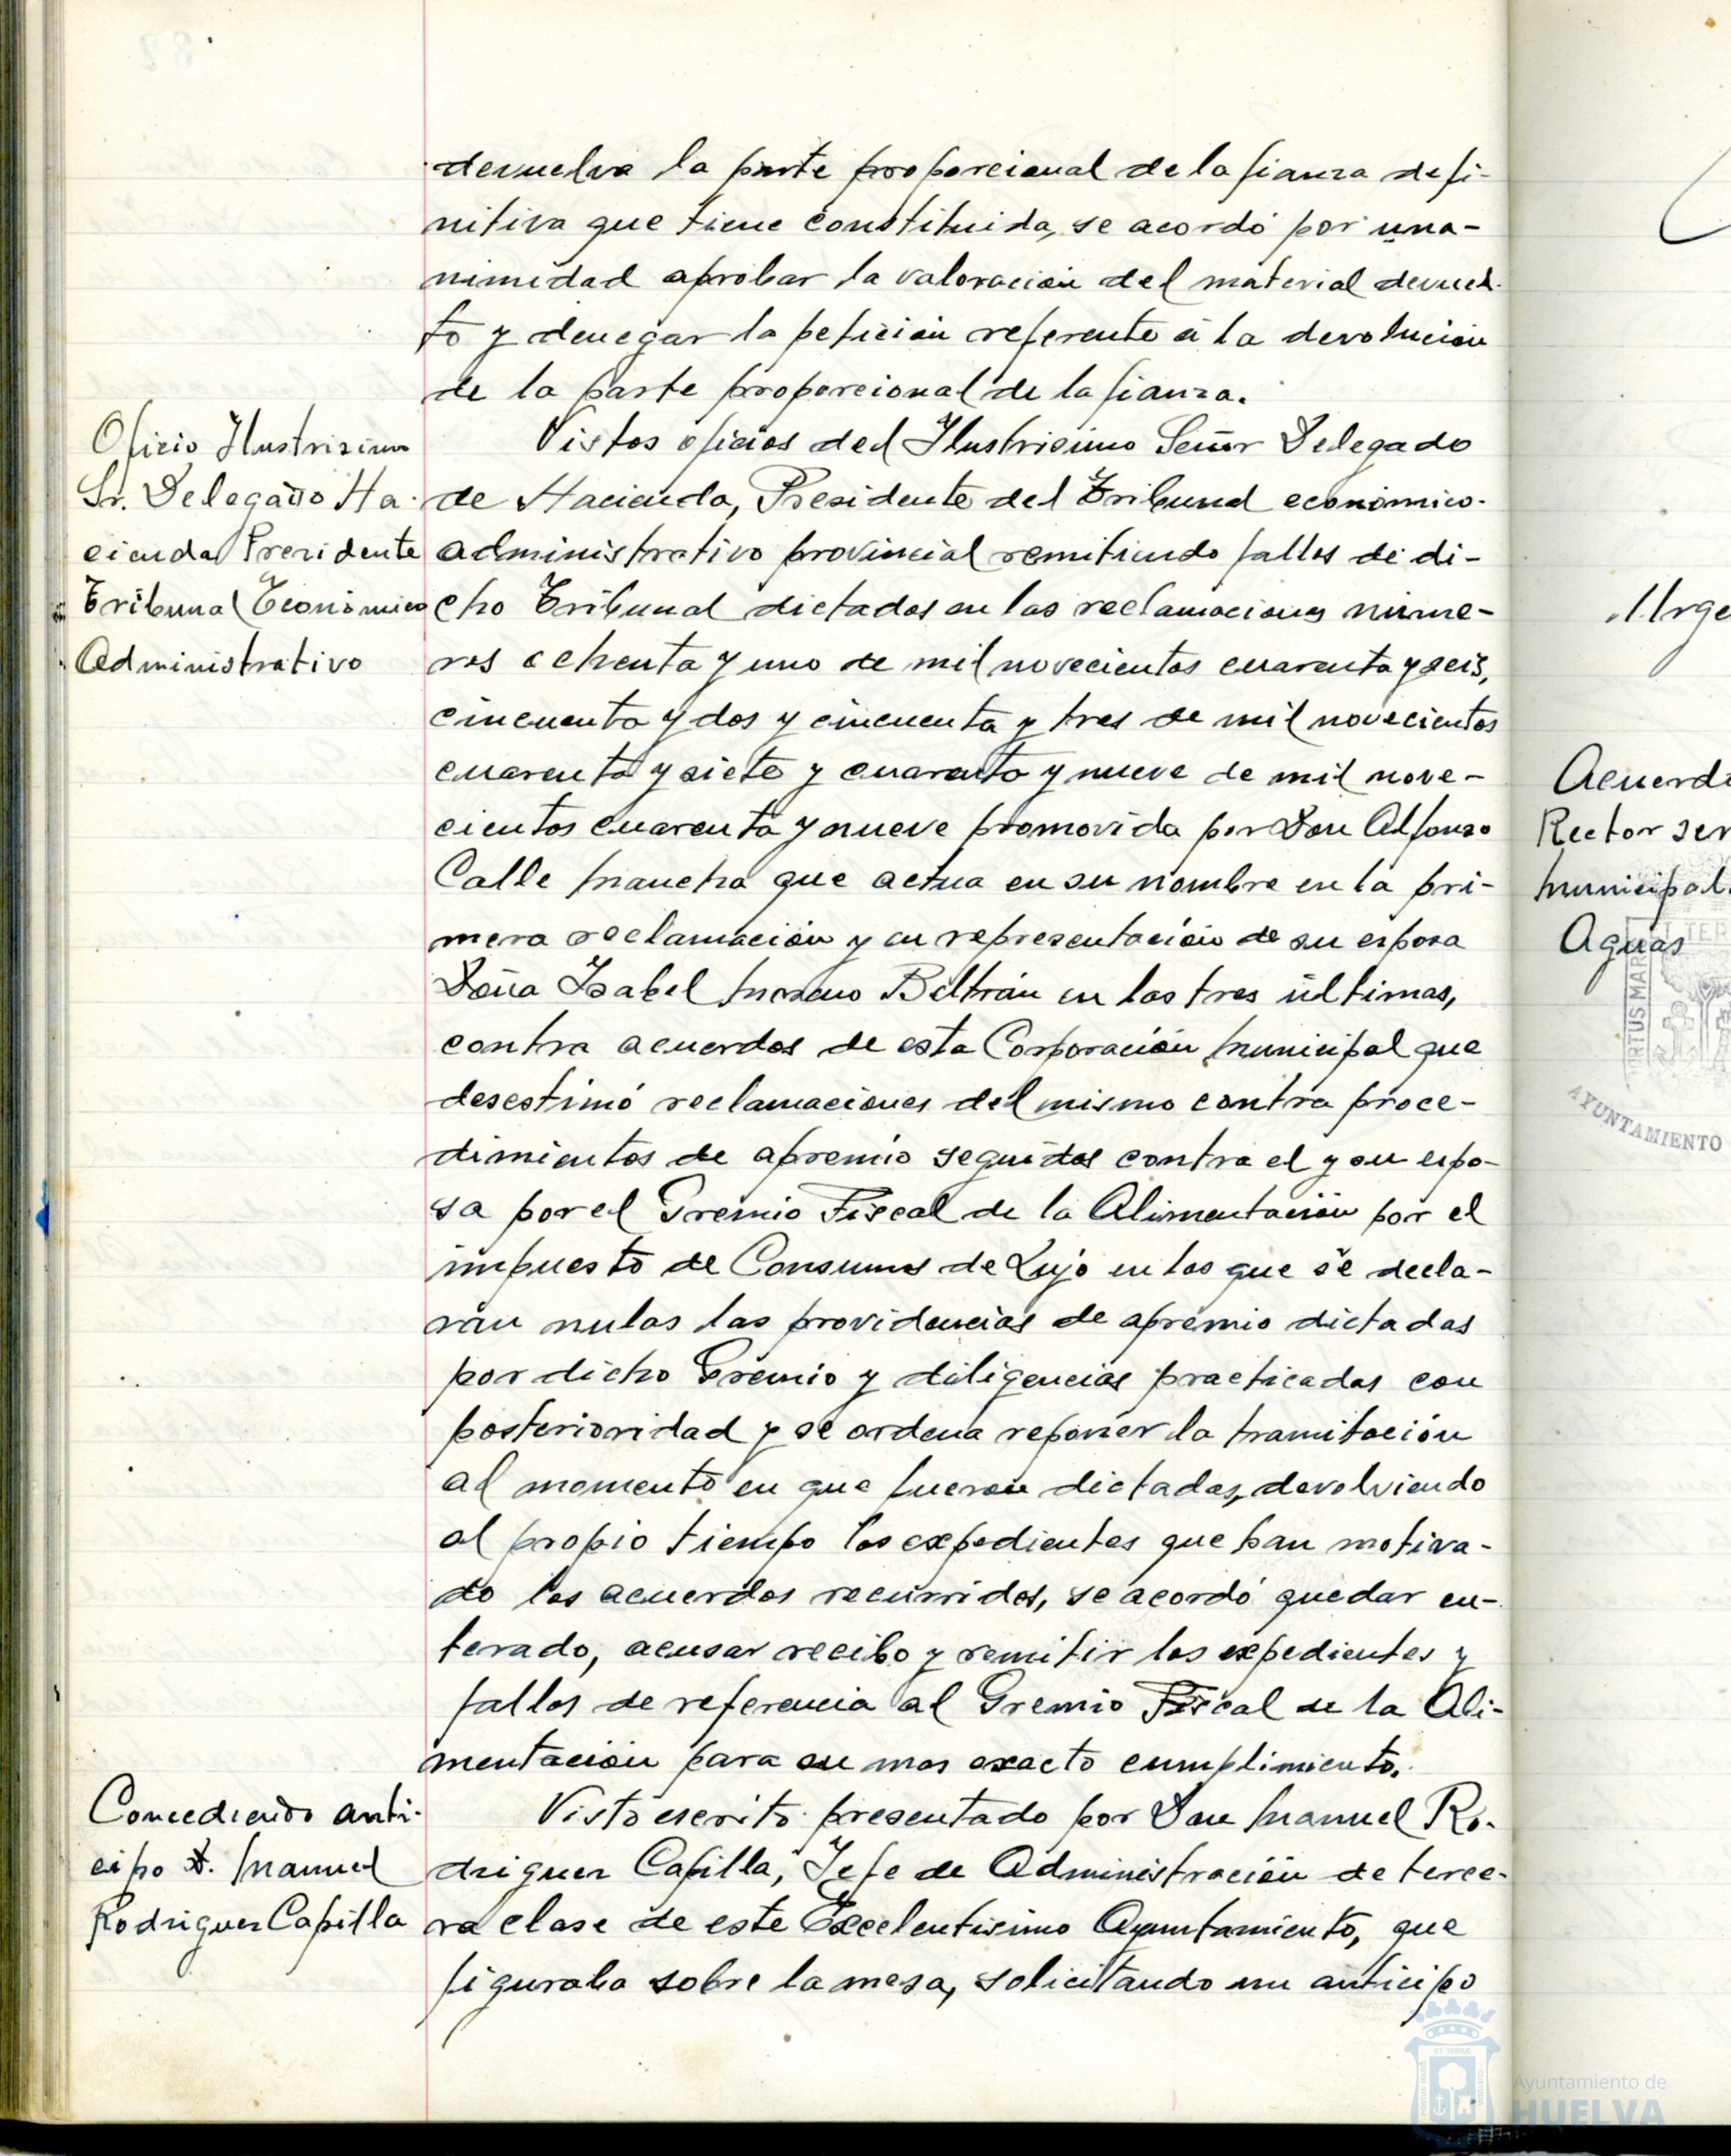 devuelva la parte proporcional de la fianza defi-
nitiva que tiene constituida, se acordó por una-
nimidad aprobar la valoración del material devuel-
to y denegar la petición referente a la devolución
de la parte proporcional de la fianza.
Oficio Ilustrisimo
Sr. Delegado Ha-
cienda Presidente
Tribunal Económico
Administrativo
Vistos oficios del Ilustrisimo Señor Delegado
de Hacienda, Presidente del Tribunal económico-
administrativo provincial remitiendo fallos de di-
cho Tribunal dictados en las reclamaciones núme-
ros ochenta y uno de mil novecientos cuarenta y seis,
cincuenta y dos y cincuenta y tres de mil novecientos
cuarenta y siete y cuarenta y nueve de mil nove-
cientos cuarenta y nueve promovida por Don Alfonso
Calle Mancha que actua en su nombre en la pri-
mera reclamación y en representación de su esposa
Doña Isabel Moreno Beltrán en las tres últimas,
contra acuerdos de esta Corporación Municipal que
desestimó reclamaciones del mismo contra proce-
dimientos de apremio seguidos contra el y su espo-
sa por el Gremio Fiscal de la Alimentación por el
impuesto de Consumos de Lujo en los que se decla-
ran nulas las providencias de apremio dictadas
por dicho Gremio y diligencias practicadas con
posterioridad y se ordena reponer la tramitación
al momento en que fueron dictadas, devolviendo
al propio tiempo los expedientes que han motiva-
do los acuerdos recurridos, se acordó quedar en-
terado, acusar recibo y remitir los expedientes y
fallos de referencia al Gremio Fiscal de la Ali-
mentación para su mas exacto cumplimiento.
Concediendo anti-
cipo D. Manuel
Rodriguez Capilla
Visto escrito presentado por Don Manuel Ro-
driguez Capilla, Jefe de Administración de terce-
ra clase de este Excelentisimo Ayuntamiento, que
figuraba sobre la mesa, solicitando un anticipo
Urge
Acuerdo
Rector ser
Municipal
Aguas
AYUNTAMIENTO
Ayuntamiento de
HUELVA